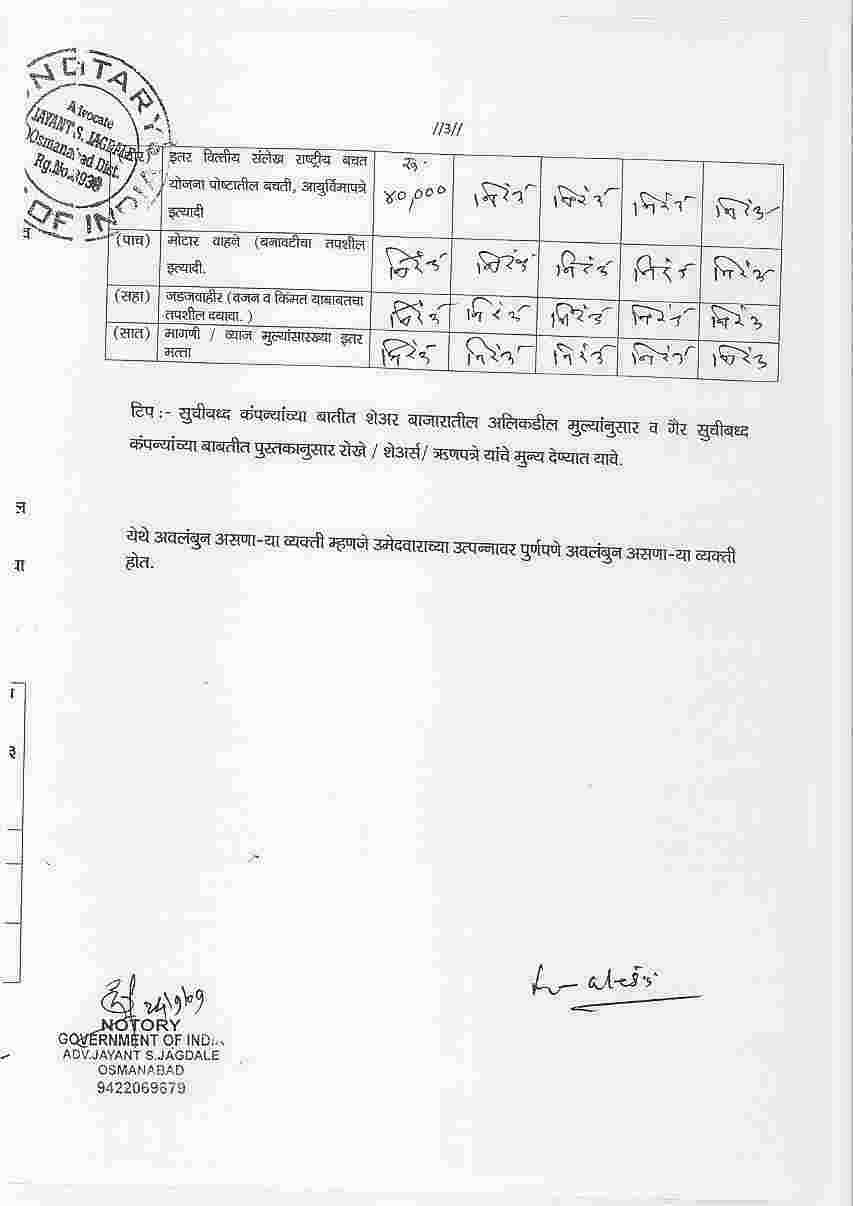 NOTARY
Advocate
JAYANT S. JAGDALE
Osmanabad Dist.
OF INDIA
//३//
इतर वित्तीय संलेख राष्ट्रीय बचत योजना पोष्टातील बचती, आयुर्विमापत्रे इत्यादी रु. ४०,००० निरंक निरंक निरंक निरंक
(पाच) मोटार वाहने (बनावटीचा तपशील इत्यादी. निरंक निरंक निरंक निरंक निरंक
(सहा) जडजवाहीर (वजन व किंमत याबाबतचा तपशील दयावा. ) निरंक निरंक निरंक निरंक निरंक
(सात) मागणी / व्याज मुल्यांसारख्या इतर मत्ता निरंक निरंक निरंक निरंक निरंक
टिप :- सुचीबध्द कंपन्यांच्या बातीत शेअर बाजारातील अलिकडील मुल्यांनुसार व गैर सुचीबध्द
कंपन्यांच्या बाबतीत पुस्तकानुसार रोखे / शेअर्स/ ऋणपत्रे यांचे मुन्य देण्यात यावे.
येथे अवलंबुन असणा-या व्यक्ती म्हणजे उमेदवाराच्या उत्पन्नावर पुर्णपणे अवलंबुन असणा-या व्यक्ती
होत.
NOTORY
GOVERNMENT OF INDIA
ADV.JAYANT S.JAGDALE
OSMANABAD
9422069679